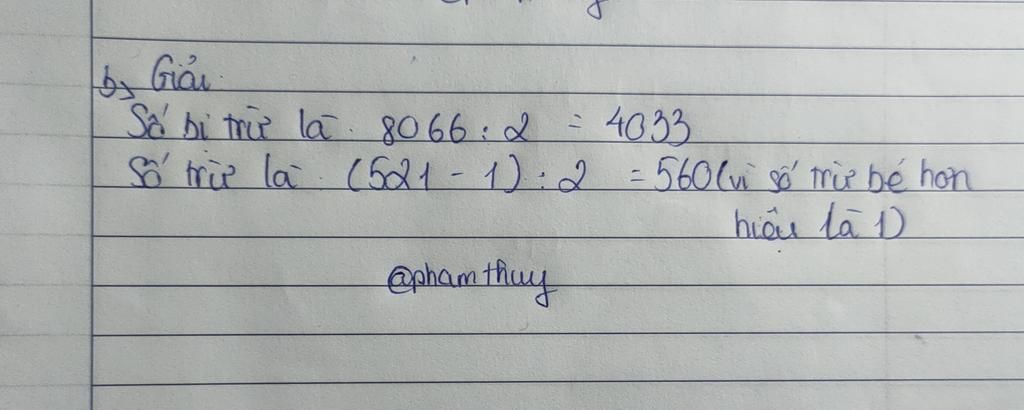 b, Giải
Số bị trừ là. 8066 : 2 = 4033
Số trừ là. (521 - 1) : 2 = 560 (vì số trừ bé hơn
hiệu là 1)
@phamthuy